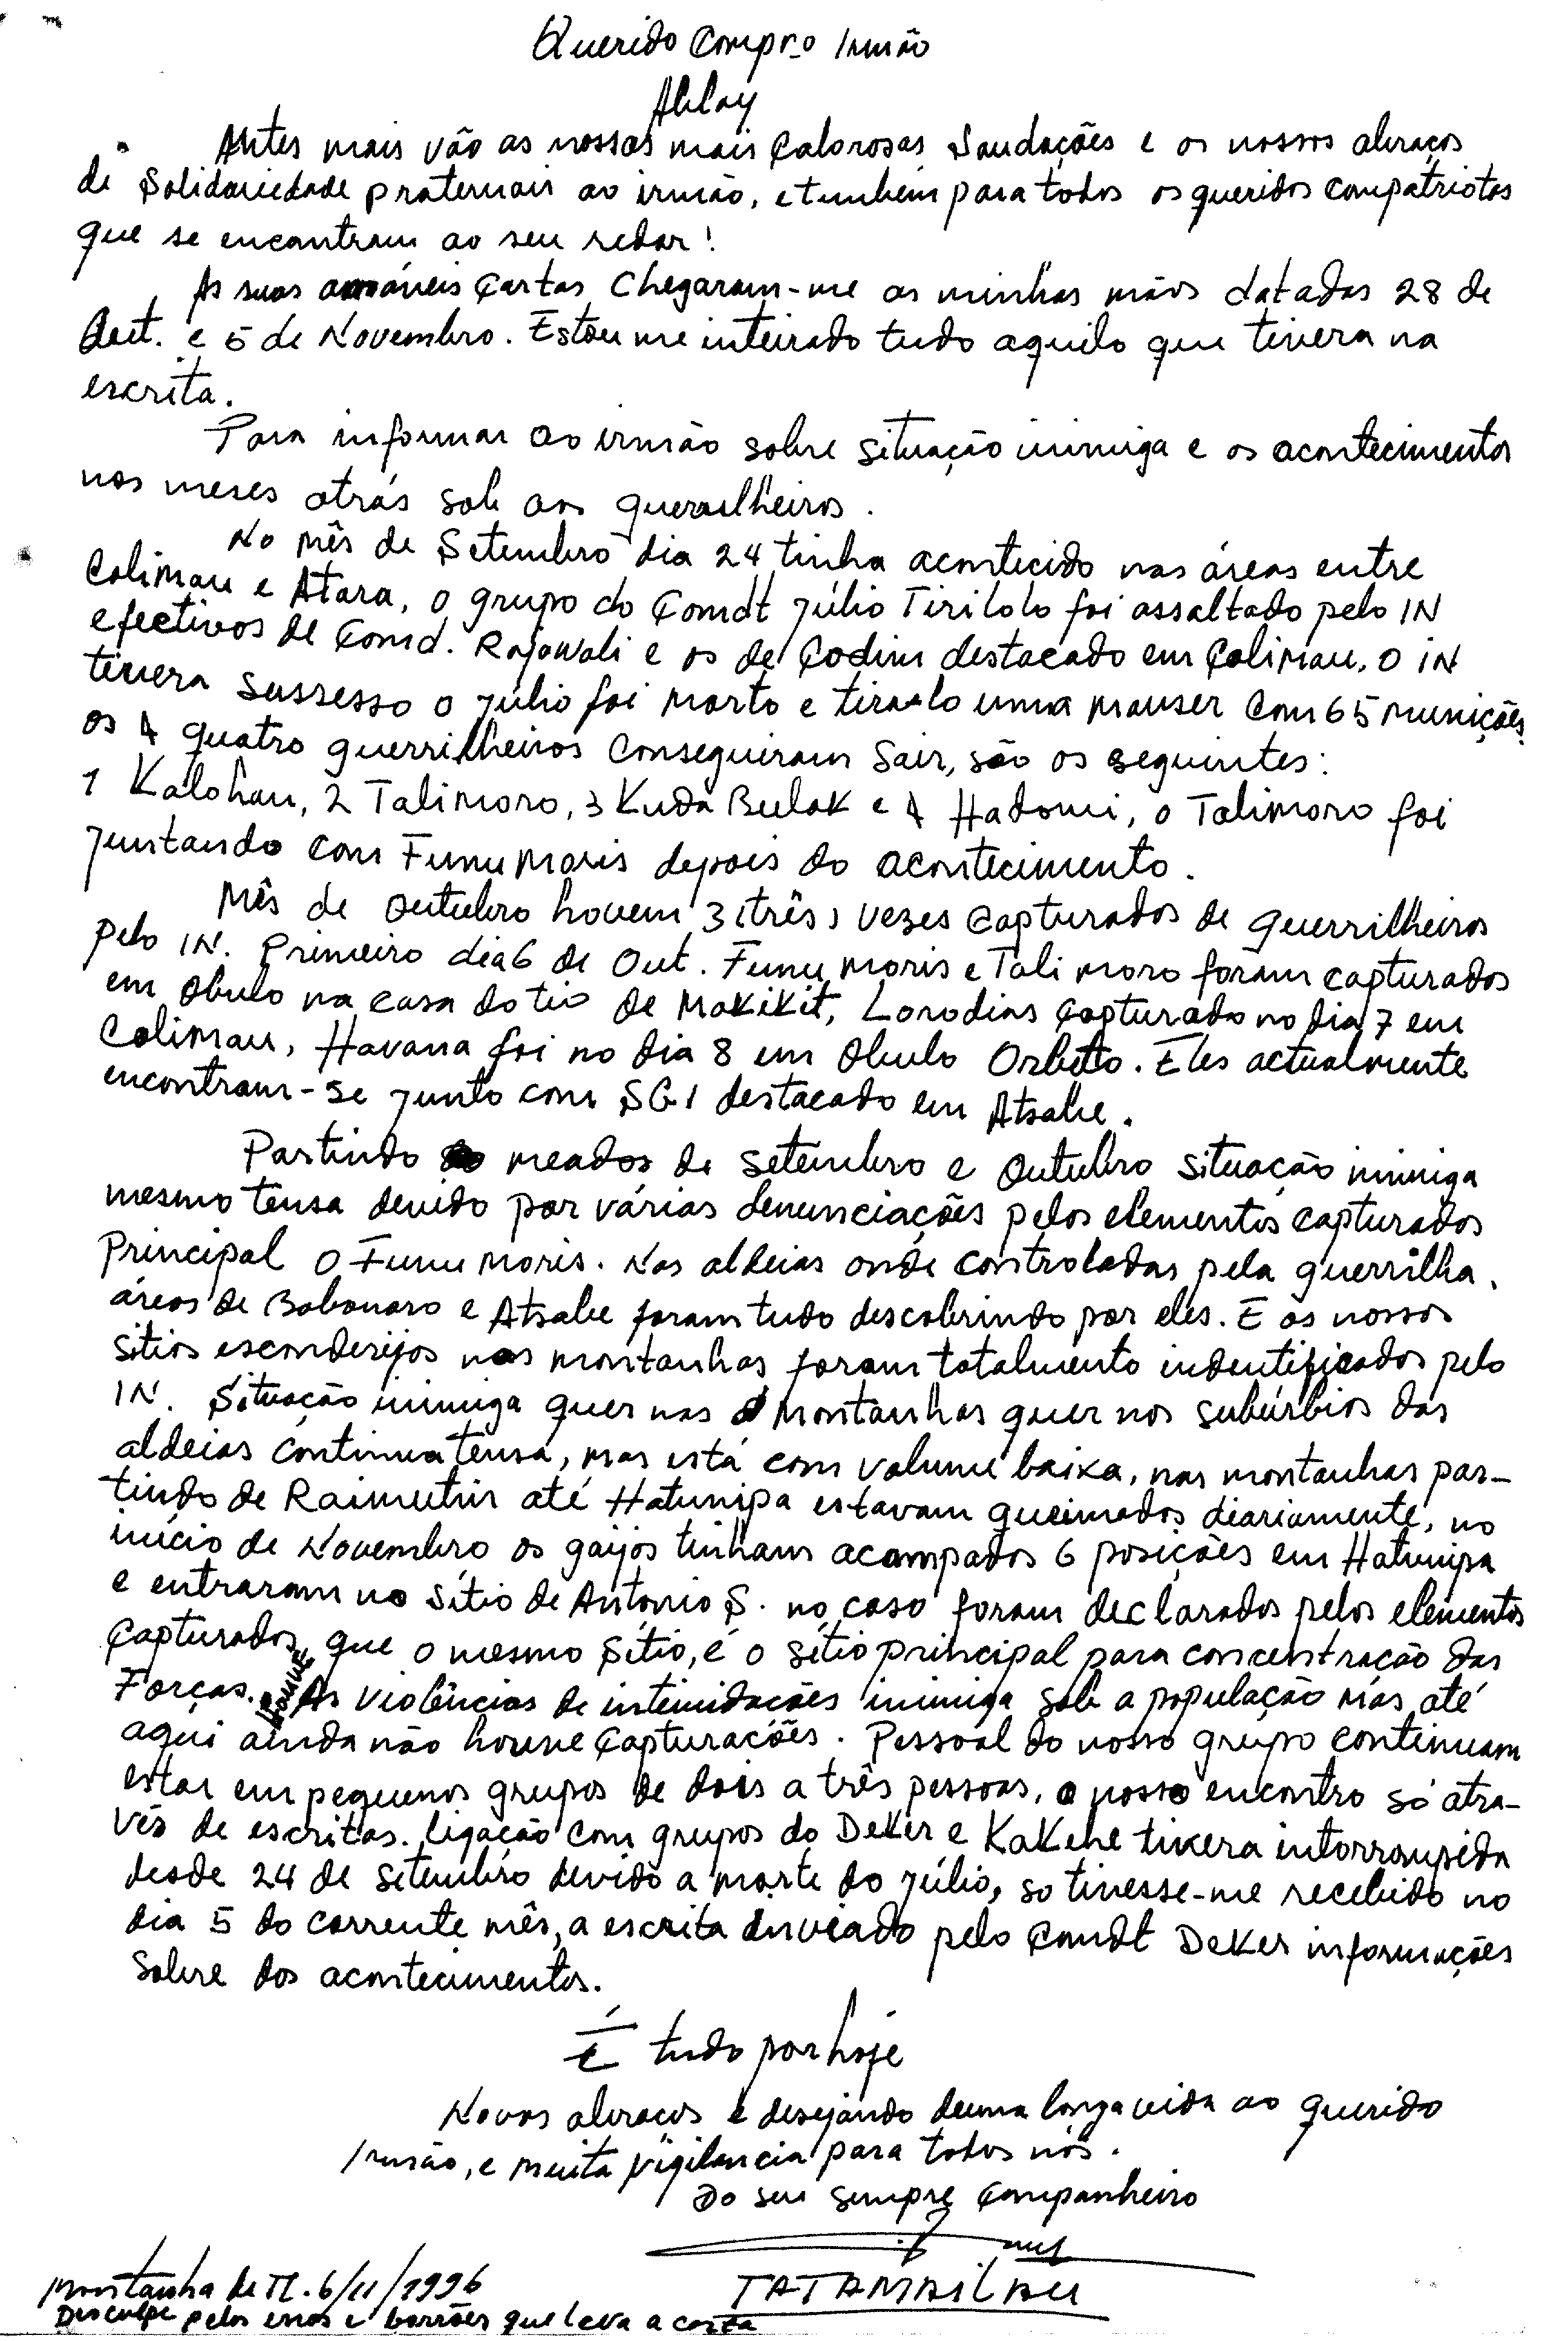 Querido Compo Irmão
Ablay
Antes mais vão as nossas mais Calorosas Saudações e os nossos abraços
de Solidariedade praternais ao irmão, e tumbém para todos os queridos compatriotas
que se encontram ao seu redor!
As suas amáveis Cartas Chegaram-me as minhas mãos datadas 28 de
Out. e 5 de Novembro. Estou me inteirado tudo aquilo que tivera na
escrita.
Para informar ao irmão sobre situação inimiga e os acontecimentos
nos meses atrás sob aos guerrilheiros.
No mês de Setembro dia 24 tinha acontecido nas áreas entre
Colimau e Atara, o grupo do Comdt Júlio Tirilolo foi assaltado pelo IN
efectivos de Comd. Rajawali e os de Codim destacado em Colimau, O iN
tivera sussesso o Júlio foi morto e tira-lo uma mauser com 65 munições.
os 4 quatro guerrilheiros conseguiram sair, são os seguintes:
1 Kalohan, 2 Talimoro, 3 Kuda Bulak e 4 Hadomi, o Talimoro foi
juntando com Funu Moris depois do acontecimento.
Mês de Outubro hovem 3 (três) vezes Capturados de guerrilheiros
pelo IN. Primeiro dia 6 de Out. Funu Moris e Tali moro foram capturados
em Obulo na casa do tio de Makikit, Lorodias Capturado no dia 7 em
Colimau, Havana foi no dia 8 em Obulo Orbeto. Eles actualmente
encontram-se junto com SGI destacado em Atsabe.
Partindo meados de Setembro e Outubro situação inimiga
mesmo tensa devido por várias denunciações pelos elementos capturados
Principal o Funu Moris. Nas aldeias onde controladas pela guerrilha,
áreas de Bobonaro e Atsabe foram tudo descobrindo por eles. E os nossos
sitios esconderijos nas montanhas foram totalmento indentificados pelo
IN. Situação inimiga quer nas Montanhas quer nos subúrbios das
aldeias continua tensa, mas está com volume baixa, nas montanhas par-
tindo de Raimuthir até Hatunipa estavam queimados diariamente, no
início de Novembro os gaijos tinham acampados 6 posições em Hatunipa
e entraram no sítio de António S. no caso foram declarados pelos elementos
Capturados que o mesmo sítio, é o sítio principal para concentração das
Forças. Houve As violências de intimidações inimiga sob a população mas até
aqui ainda não houve Capturações. Pessoal do nosso grupo continuam
estar em pequenos grupos de dois a três pessoas, o nosso encontro só atra-
vés de escritas. Ligação com grupos do Deker e Kakehe tivera intorrompida
desde 24 de Setembro devido a morte do Júlio, so tivesse-me recebido no
dia 5 do corrente mês, a escrita inviado pelo Comdt Deker informações
sobre dos acontecimentos.
É tudo por hoje
Novos abraços e desejando duma longa vida ao querido
Irmão, e muita vigilancia para todos nós.
Do seu sempre Companheiro
TATAMAILAU
Montanha de TL. 6/11/1996
Desculpe pelos erros e borrões que leva a carta